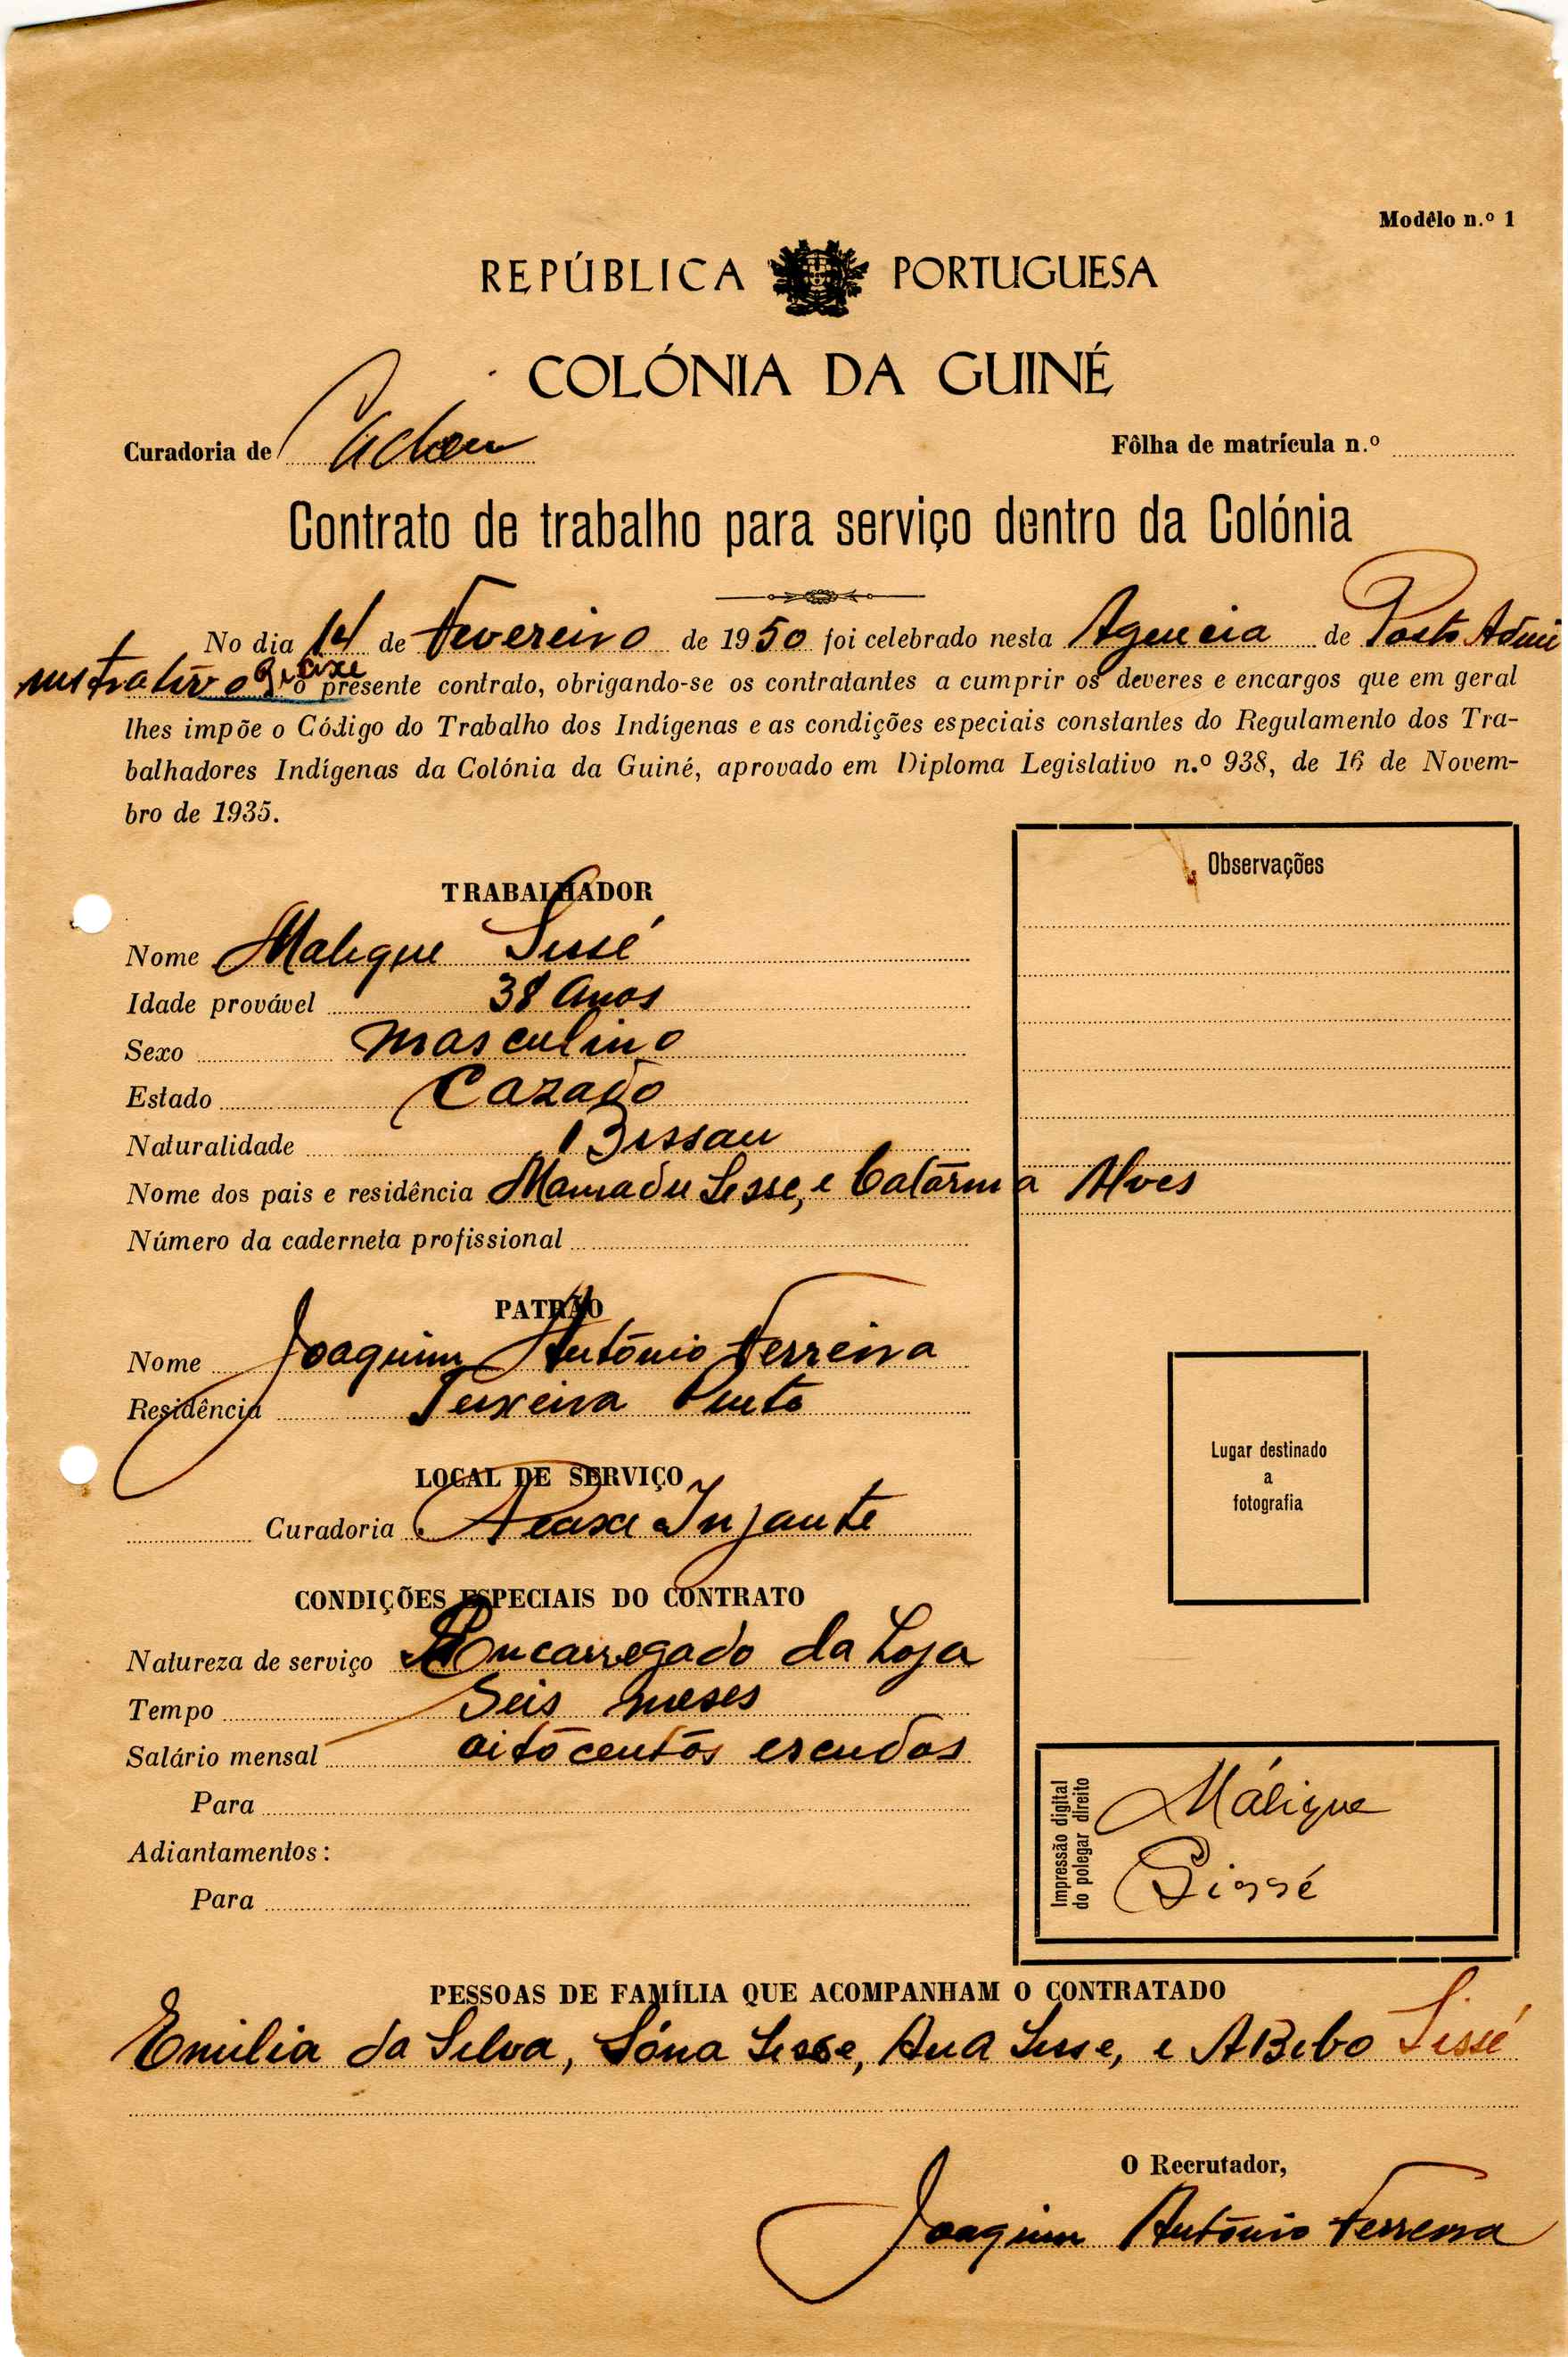 Modêlo n.º 1
REPÚBLICA PORTUGUESA
COLÓNIA DA GUINÉ
Curadoria de Cacheu
Fôlha de matrícula n.º
Contrato de trabalho para serviço dentro da Colónia
No dia 14 de Fevereiro de 1950 foi celebrado nesta Agencia de Posto Admi
nistrativo o presente contrato, obrigando-se os contratantes a cumprir os deveres e encargos que em geral
lhes impõe o Código do Trabalho dos Indígenas e as condições especiais constantes do Regulamento dos Tra-
balhadores Indígenas da Colónia da Guiné, aprovado em Diploma Legislativo n.º 938, de 16 de Novem-
bro de 1935.
TRABALHADOR
Nome Malique Sissé
Idade provável 38 Anos
Sexo masculino
Estado Cazado
Naturalidade Bissau
Nome dos pais e residência Mamadu Sisse, e Catarina Alves
Número da caderneta profissional
PATRÃO
Nome Joaquim António Ferreira
Residência Teixeira Pinto
LOCAL DE SERVIÇO
Curadoria Infante
CONDIÇÕES ESPECIAIS DO CONTRATO
Natureza de serviço Encarregado da Loja
Tempo Seis meses
Salário mensal oitocentos escudos
Para
Adiantamentos:
Para
Observações
Lugar destinado
a
fotografia
Impressão digital
do polegar direito
Málique
Sissé
PESSOAS DE FAMÍLIA QUE ACOMPANHAM O CONTRATADO
Emilia da Silva, Sóna Sisse, Ana Sisse, e ABibo Sissé
O Recrutador,
Joaquim António Ferreira